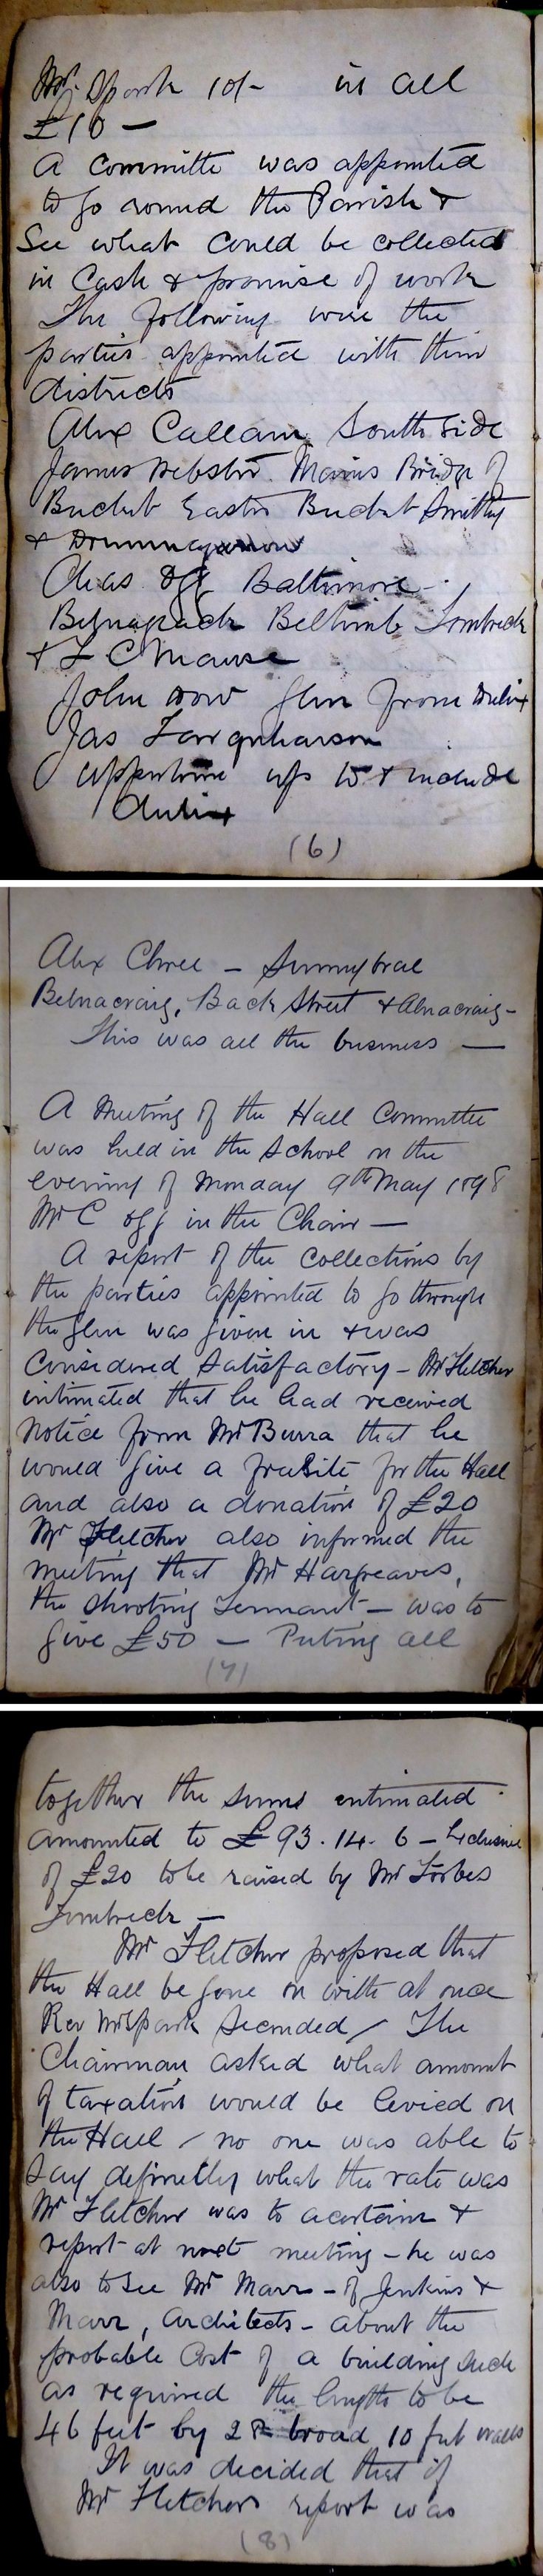 Mr. Spark 10/- in all
£10 —
A committe was appointed
to go around the Parrish &
See what could be collected
in Cash & promise of work
The following were the
parties appointed with their
districts
Alex Callam South side
James Webster. Mains Bridge of
Buchat Easter Buchat Smithy
&
Chas Ogg Baltimore -
Belnagack Beltimb Tombreck
& F C Manse
John Dow Glen from Dulix
Jas Farquharson
up to & include
Dulix
(6)
Alex Chree – Sunnybrae
Belnacraig, Back Street & Alnacraig -
This was all the business —
A Meeting of the Hall Committee
was held in the School on the
evening of Monday 9th May 1898
Mr C Ogg in the Chair —
A report of the collections by
the parties appointed to go through
the glen was given in & was
Considered Satisfactory – Mr Fletcher
intimated that he had received
Notice from Mr Burra that he
would give a free Site for the Hall
and also a donation of £20
Mr Fletcher also informed the
meeting that Mr Hargreaves,
the shooting Tennant – was to
give £50 – Puting all
(7)
together the sums intimated
amounted to £93.14.6 – Exclusive
of £20 to be raised by Mr Forbes
Tombreck —
Mr Fletcher proposed that
the Hall be gone on with at once
Rev Mr Spark Seconded / The
Chairman asked what amount
of taxation would be levied on
the Hall / no one was able to
say definetly what the rate was
Mr Fletcher was to acertain &
report at next meeting – he was
also to see Mr Marr – of Jenkins &
Marr, Architects – about the
probable Cost of a building such
as required the length to be
46 feet by 28 broad 10 feet walls
It was decided that if
Mr Fletchers report was
(8)